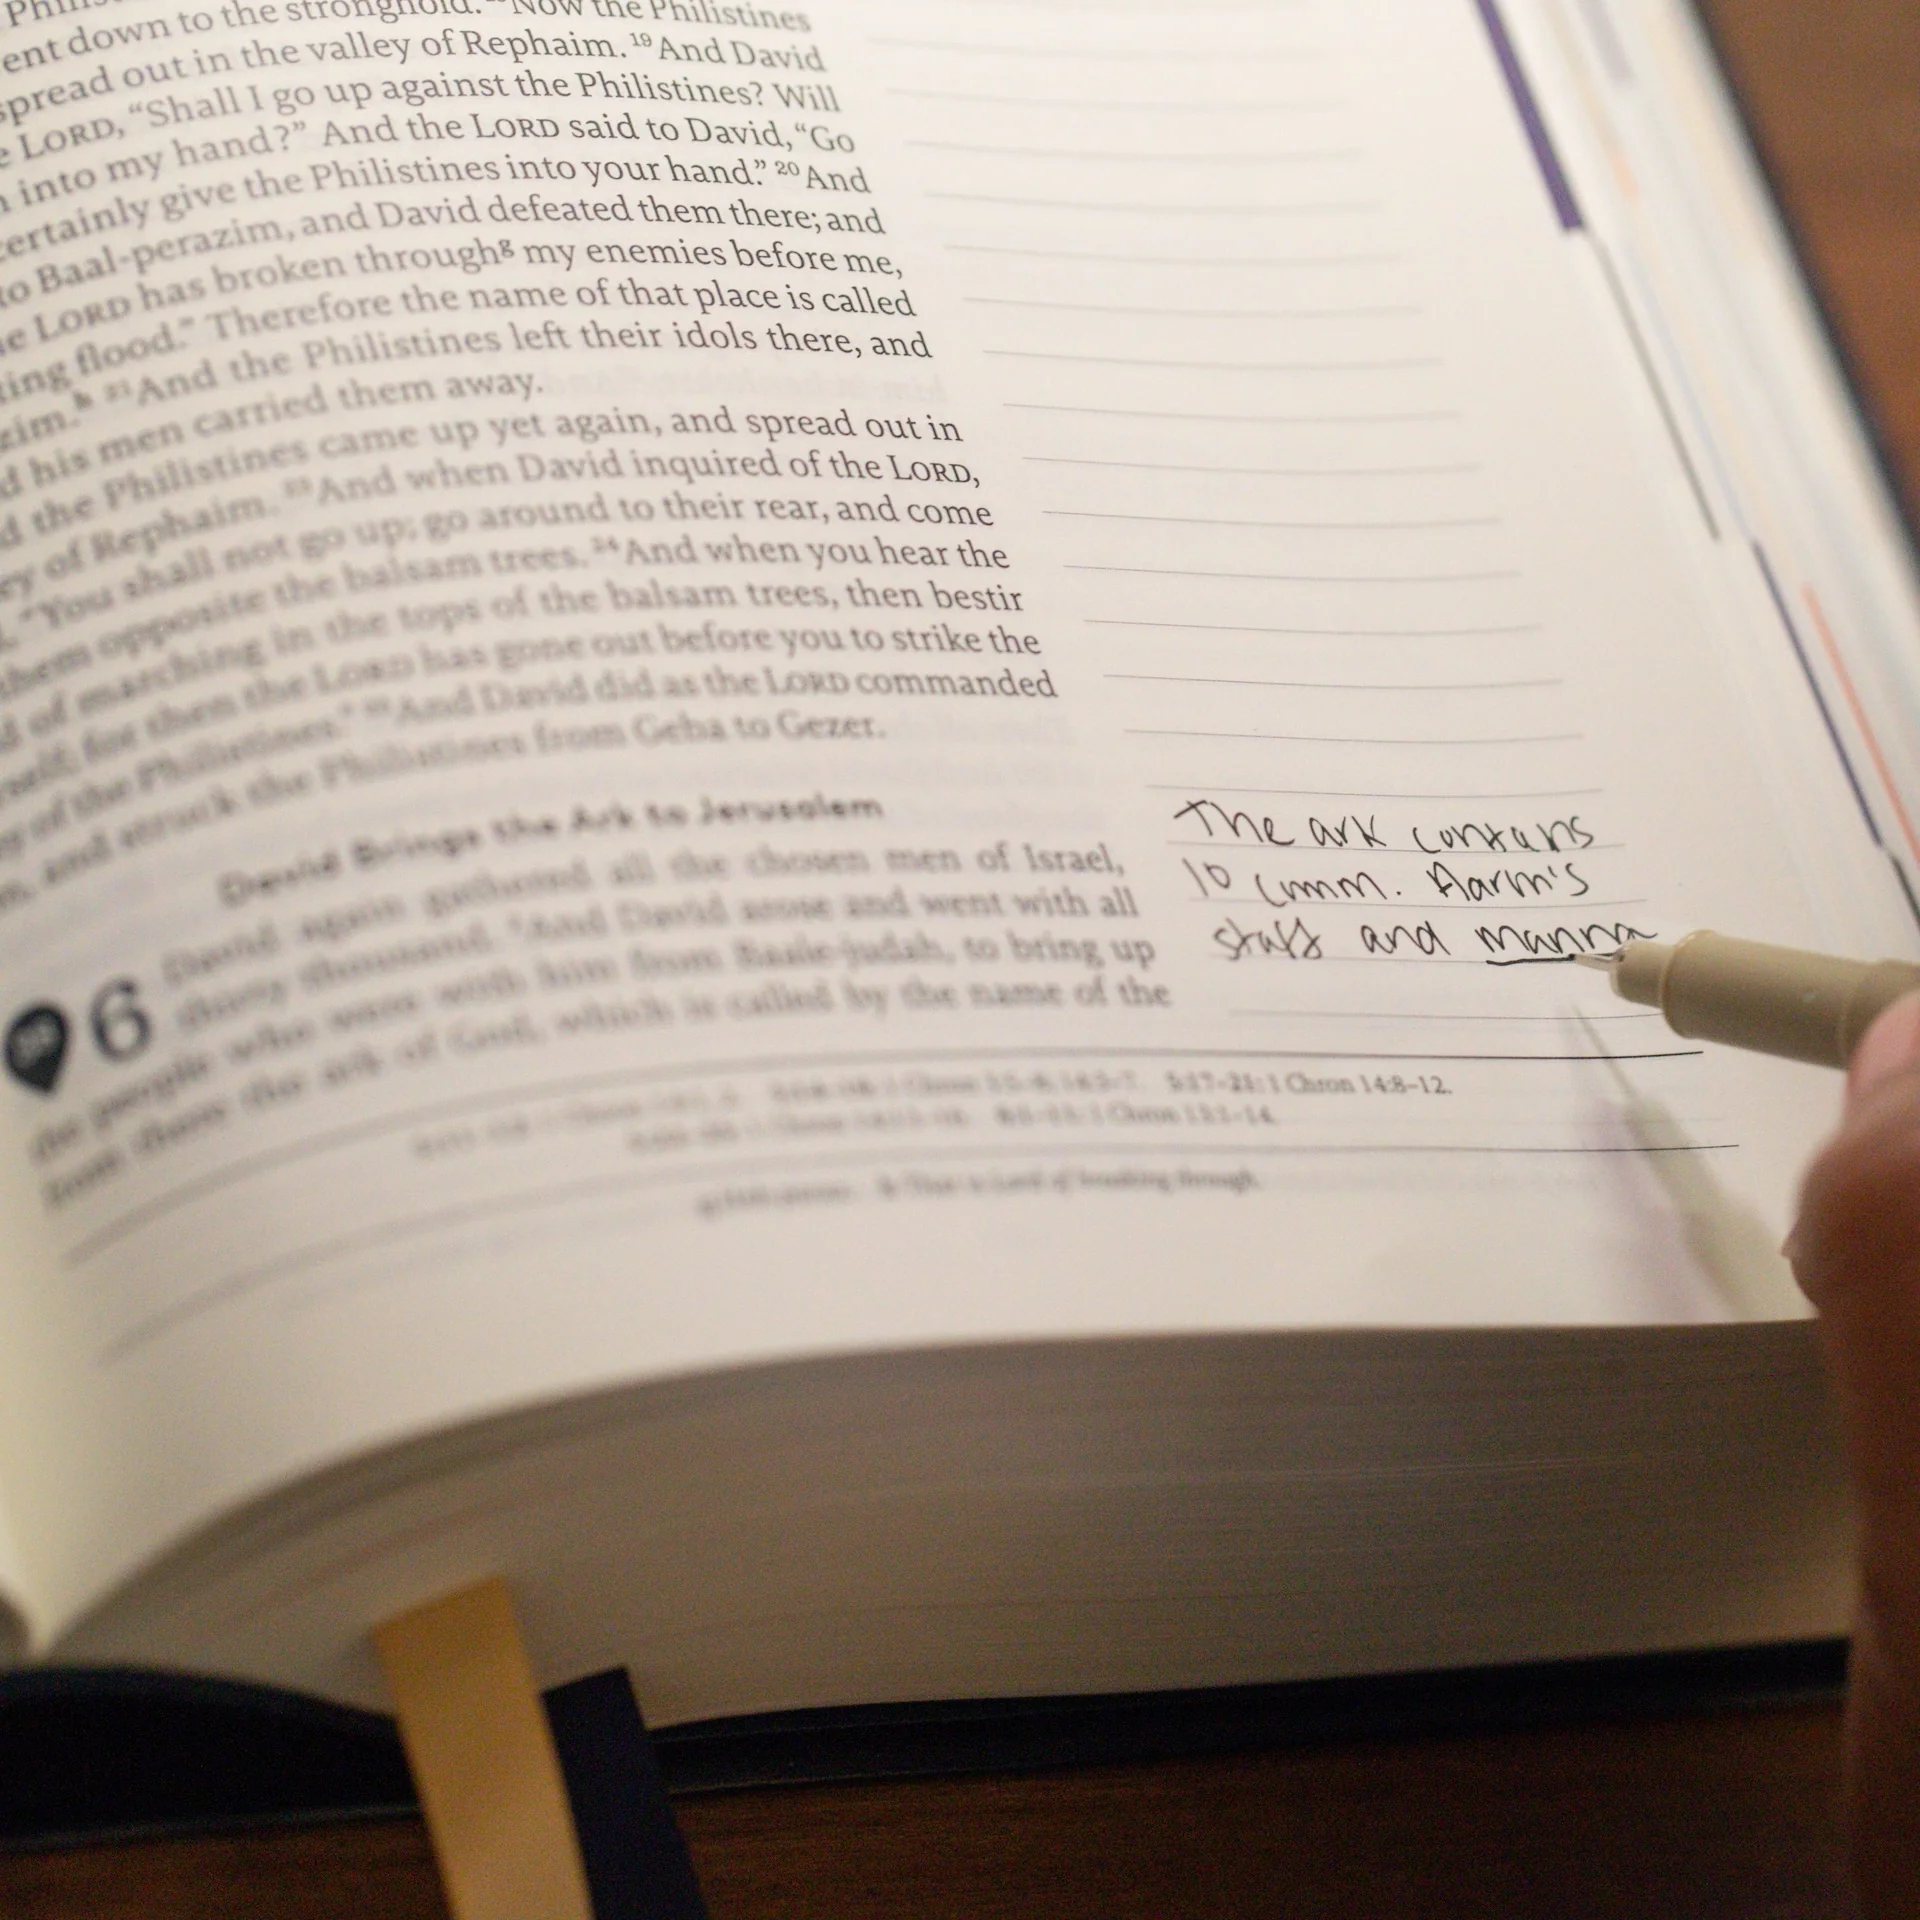 Phili
ent down to the stronghold. Now the Philistines
spread out in the valley of Rephaim. 19 And David
e LORD, “Shall I go up against the Philistines? Will
into my hand?” And the LORD said to David, “Go
certainly give the Philistines into your hand.” 20 And
to Baal-perazim, and David defeated them there; and
he LORD has broken through g my enemies before me,
ting flood.” Therefore the name of that place is called
zim. h 21 And the Philistines left their idols there, and
d his men carried them away.
d the Philistines came up yet again, and spread out in
ey of Rephaim. 23 And when David inquired of the LORD,
“You shall not go up; go around to their rear, and come
them opposite the balsam trees. 24 And when you hear the
d of marching in the tops of the balsam trees, then bestir
rself, for then the LORD has gone out before you to strike the
y of the Philistines.” 25 And David did as the LORD commanded
m, and struck the Philistines from Geba to Gezer.
David Brings the Ark to Jerusalem
6 David again gathered all the chosen men of Israel,
thirty thousand. 2 And David arose and went with all
the people who were with him from Baale-judah, to bring up
from there the ark of God, which is called by the name of the
The ark contains
10 comm. Aaron's
staff and manna
5:17–21: 1 Chron 14:8–12.
1 Chron 13:1–14.
h That is Lord of breaking through.